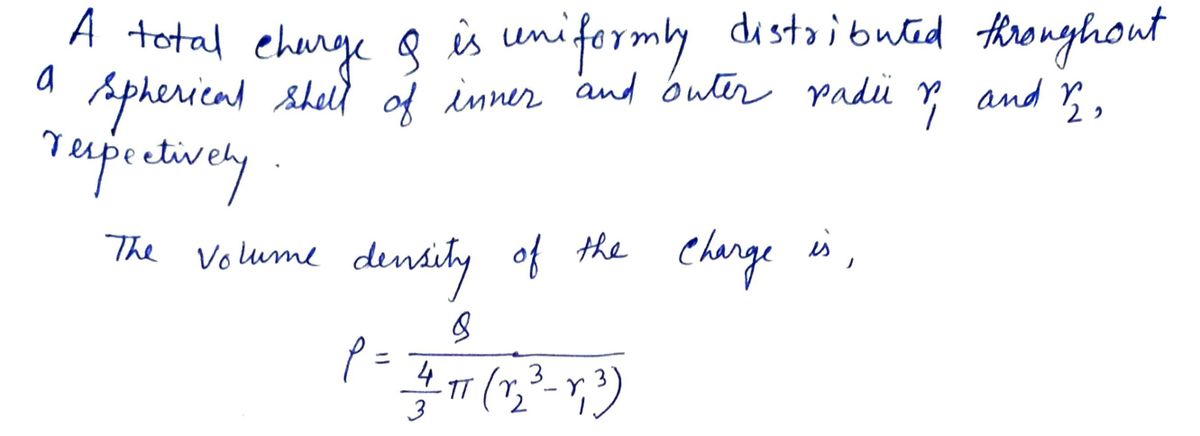 A total charge Q is uniformly distributed throughout
a spherical shell of inner and outer radii r₁ and r₂,
respectively.
The volume density of the charge is,
ρ = Q / (4/3 π (r₂³ - r₁³))